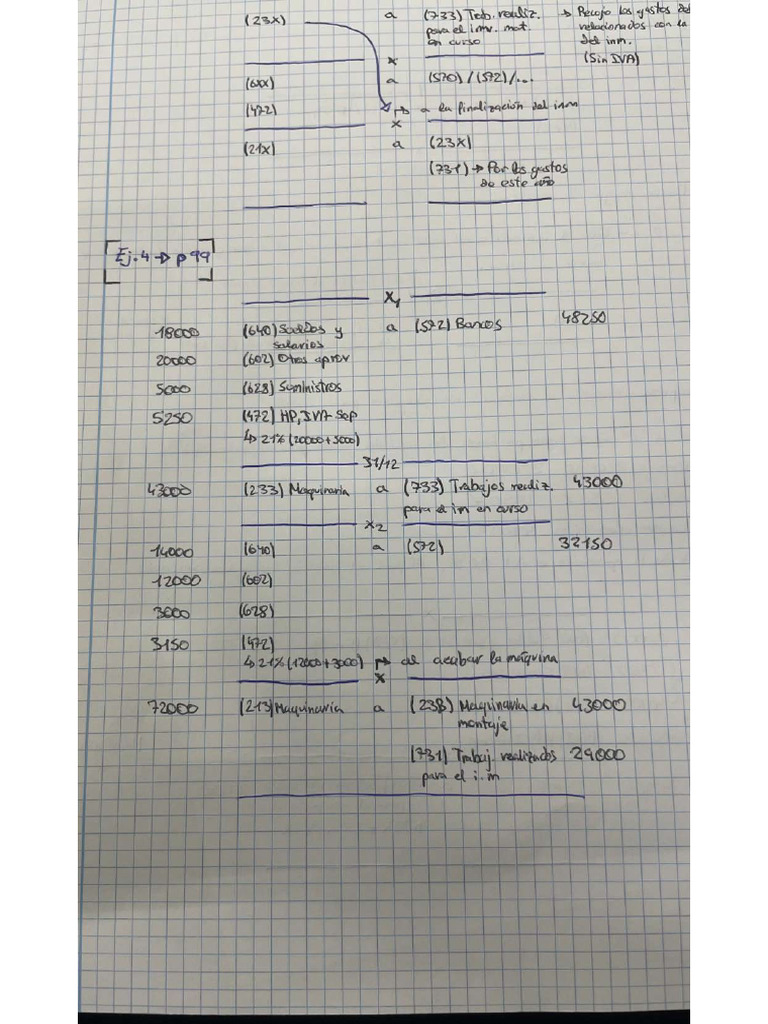 (23X) a (733) Trab. realiz. → Recojo los gastos
para el inv. mat. relacionados con la
en curso del inm.
x (Sin IVA)
(6XX) a (570) / (572) /...
(472) ↦ a la finalización del inm
x
(21X) a (23X)
(731) → Por los gastos
de este año
Ej.4 → p 99
X1
18000 (640) Sueldos y a (572) Bancos 48250
salarios
20000 (602) Otros aprov
5000 (628) Suministros
5250 (472) HP, IVA Sop
↳ 21% (20000+5000)
31/12
43000 (233) Maquinaria a (733) Trabajos realiz. 43000
para el im en curso
X2
14000 (640) a (572) 32150
12000 (602)
3000 (628)
3150 (472)
↳ 21% (12000+3000) ↦ al acabar la máquina
x
72000 (213) Maquinaria a (233) Maquinaria en 43000
montaje
(731) Trabaj. realizados 29000
para el i.m